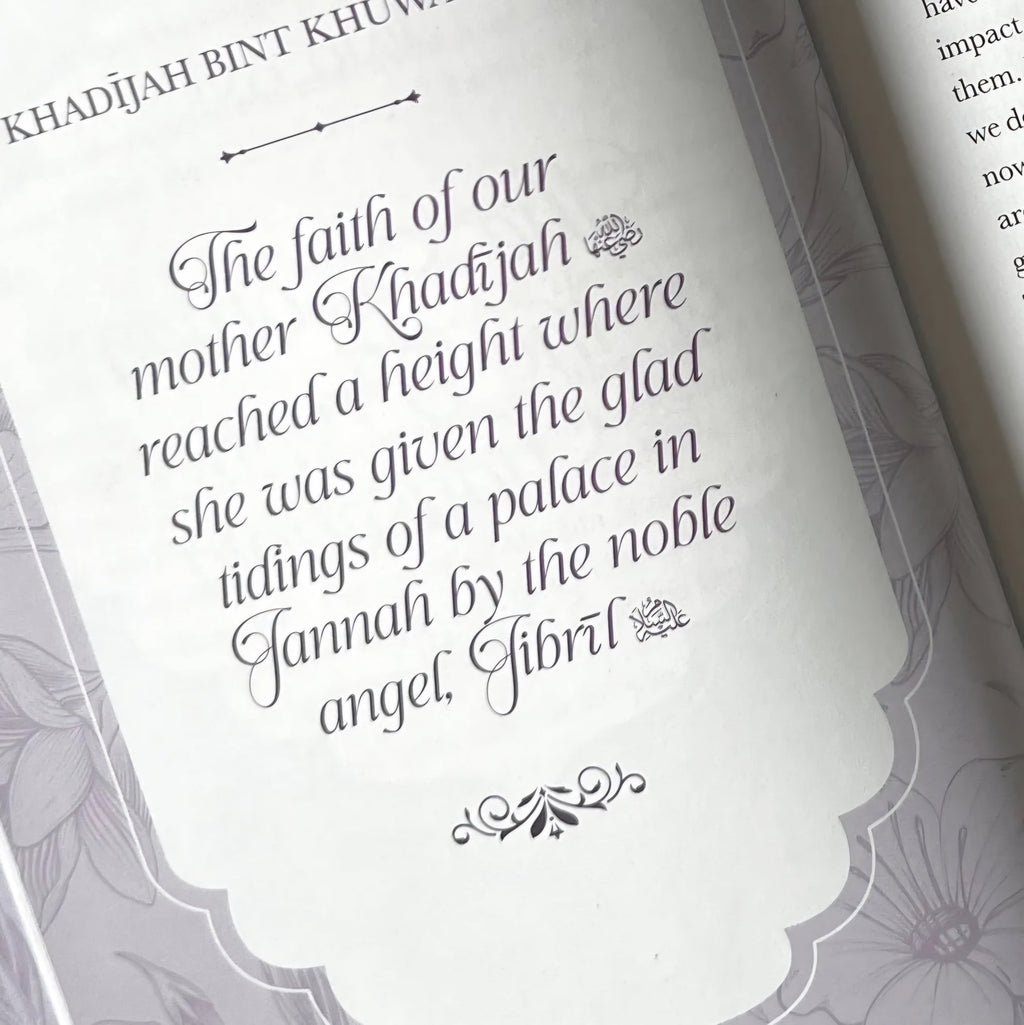 KHADĪJAH BINT KHUWA
The faith of our
mother Khadījah رضي الله عنها
reached a height where
she was given the glad
tidings of a palace in
Jannah by the noble
angel, Jibrīl عليه السلام
impact
them.
we